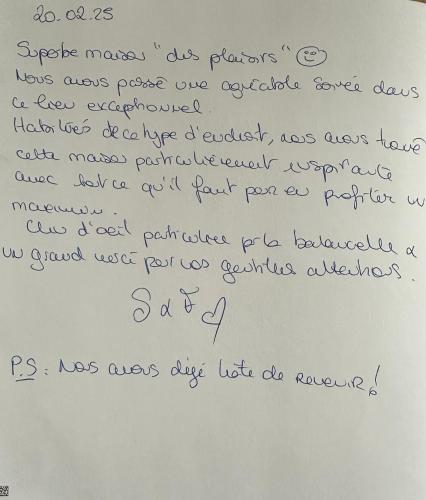 20.02.25
Superbe maison "des plaisirs" ☺
Nous avons passé une agréable soirée dans
ce lieu exceptionnel.
Habitués de ce type d'endroit, nous avons trouvé
cette maison particulièrement inspirante
avec tout ce qu'il faut pour en profiter un
maximum.
Clin d'oeil particulier pr la balancelle &
un grand merci pour vos gentilles attentions.
S & F
P.S : Nous avons déjà hâte de REVENIR !